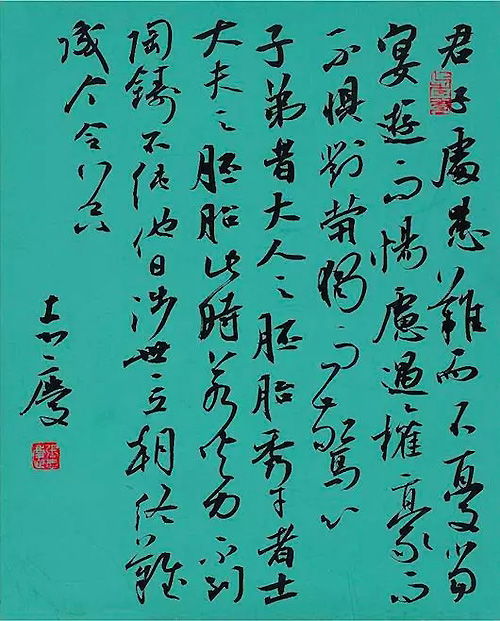 君子處患難而不憂當
宴遊而惕慮遇權豪而
不懼對煢獨而驚心
子弟者大人之胚胎秀才者士
大夫之胚胎此時若火力不到
陶鑄不純他日涉世立朝終難
成个令器
志慶